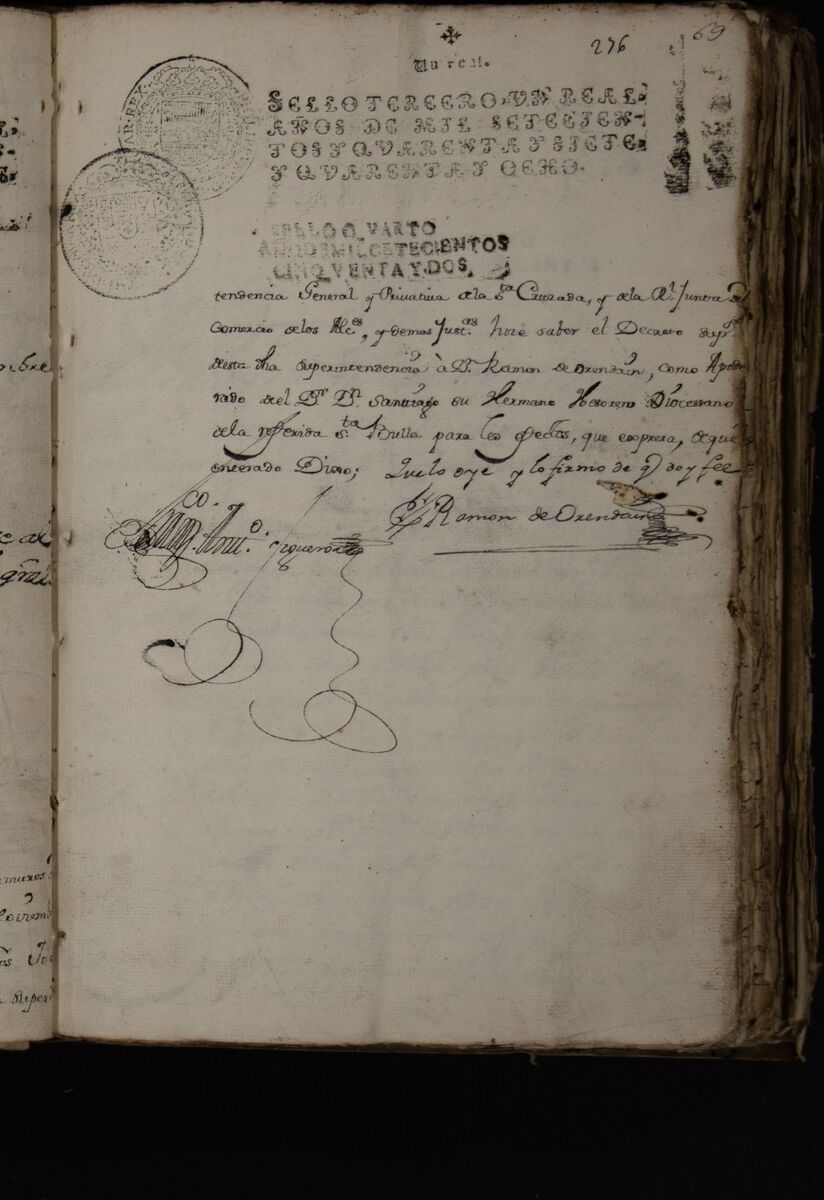 276
69
Un real.
SELLO TERCERO, VN REAL,
AÑOS DE MIL SETECIEN-
TOS Y QVARENTA Y SIETE,
Y QVARENTA Y OCHO.
SELLO QVARTO
AÑO DE MIL SETECIENTOS
CINQVENTA Y DOS.
tendencia General y Privativa de la Sta Cruzada, y de la Rl Junta de
Comercio de los Alces, y demas Justas hize saber el Decreto
de esta dha superintendencia à Dn Ramon de Orendain, como Apode
rado del Dor Dn Santiago su Hermano Thesorero Diocessano
de la refferida Sta Bulla para los efectos, que expresa, de que
encerado Dixo; Que lo oye y lo firmo de q doy fee
Ramon de Orendain
Juan Anto Figueroa